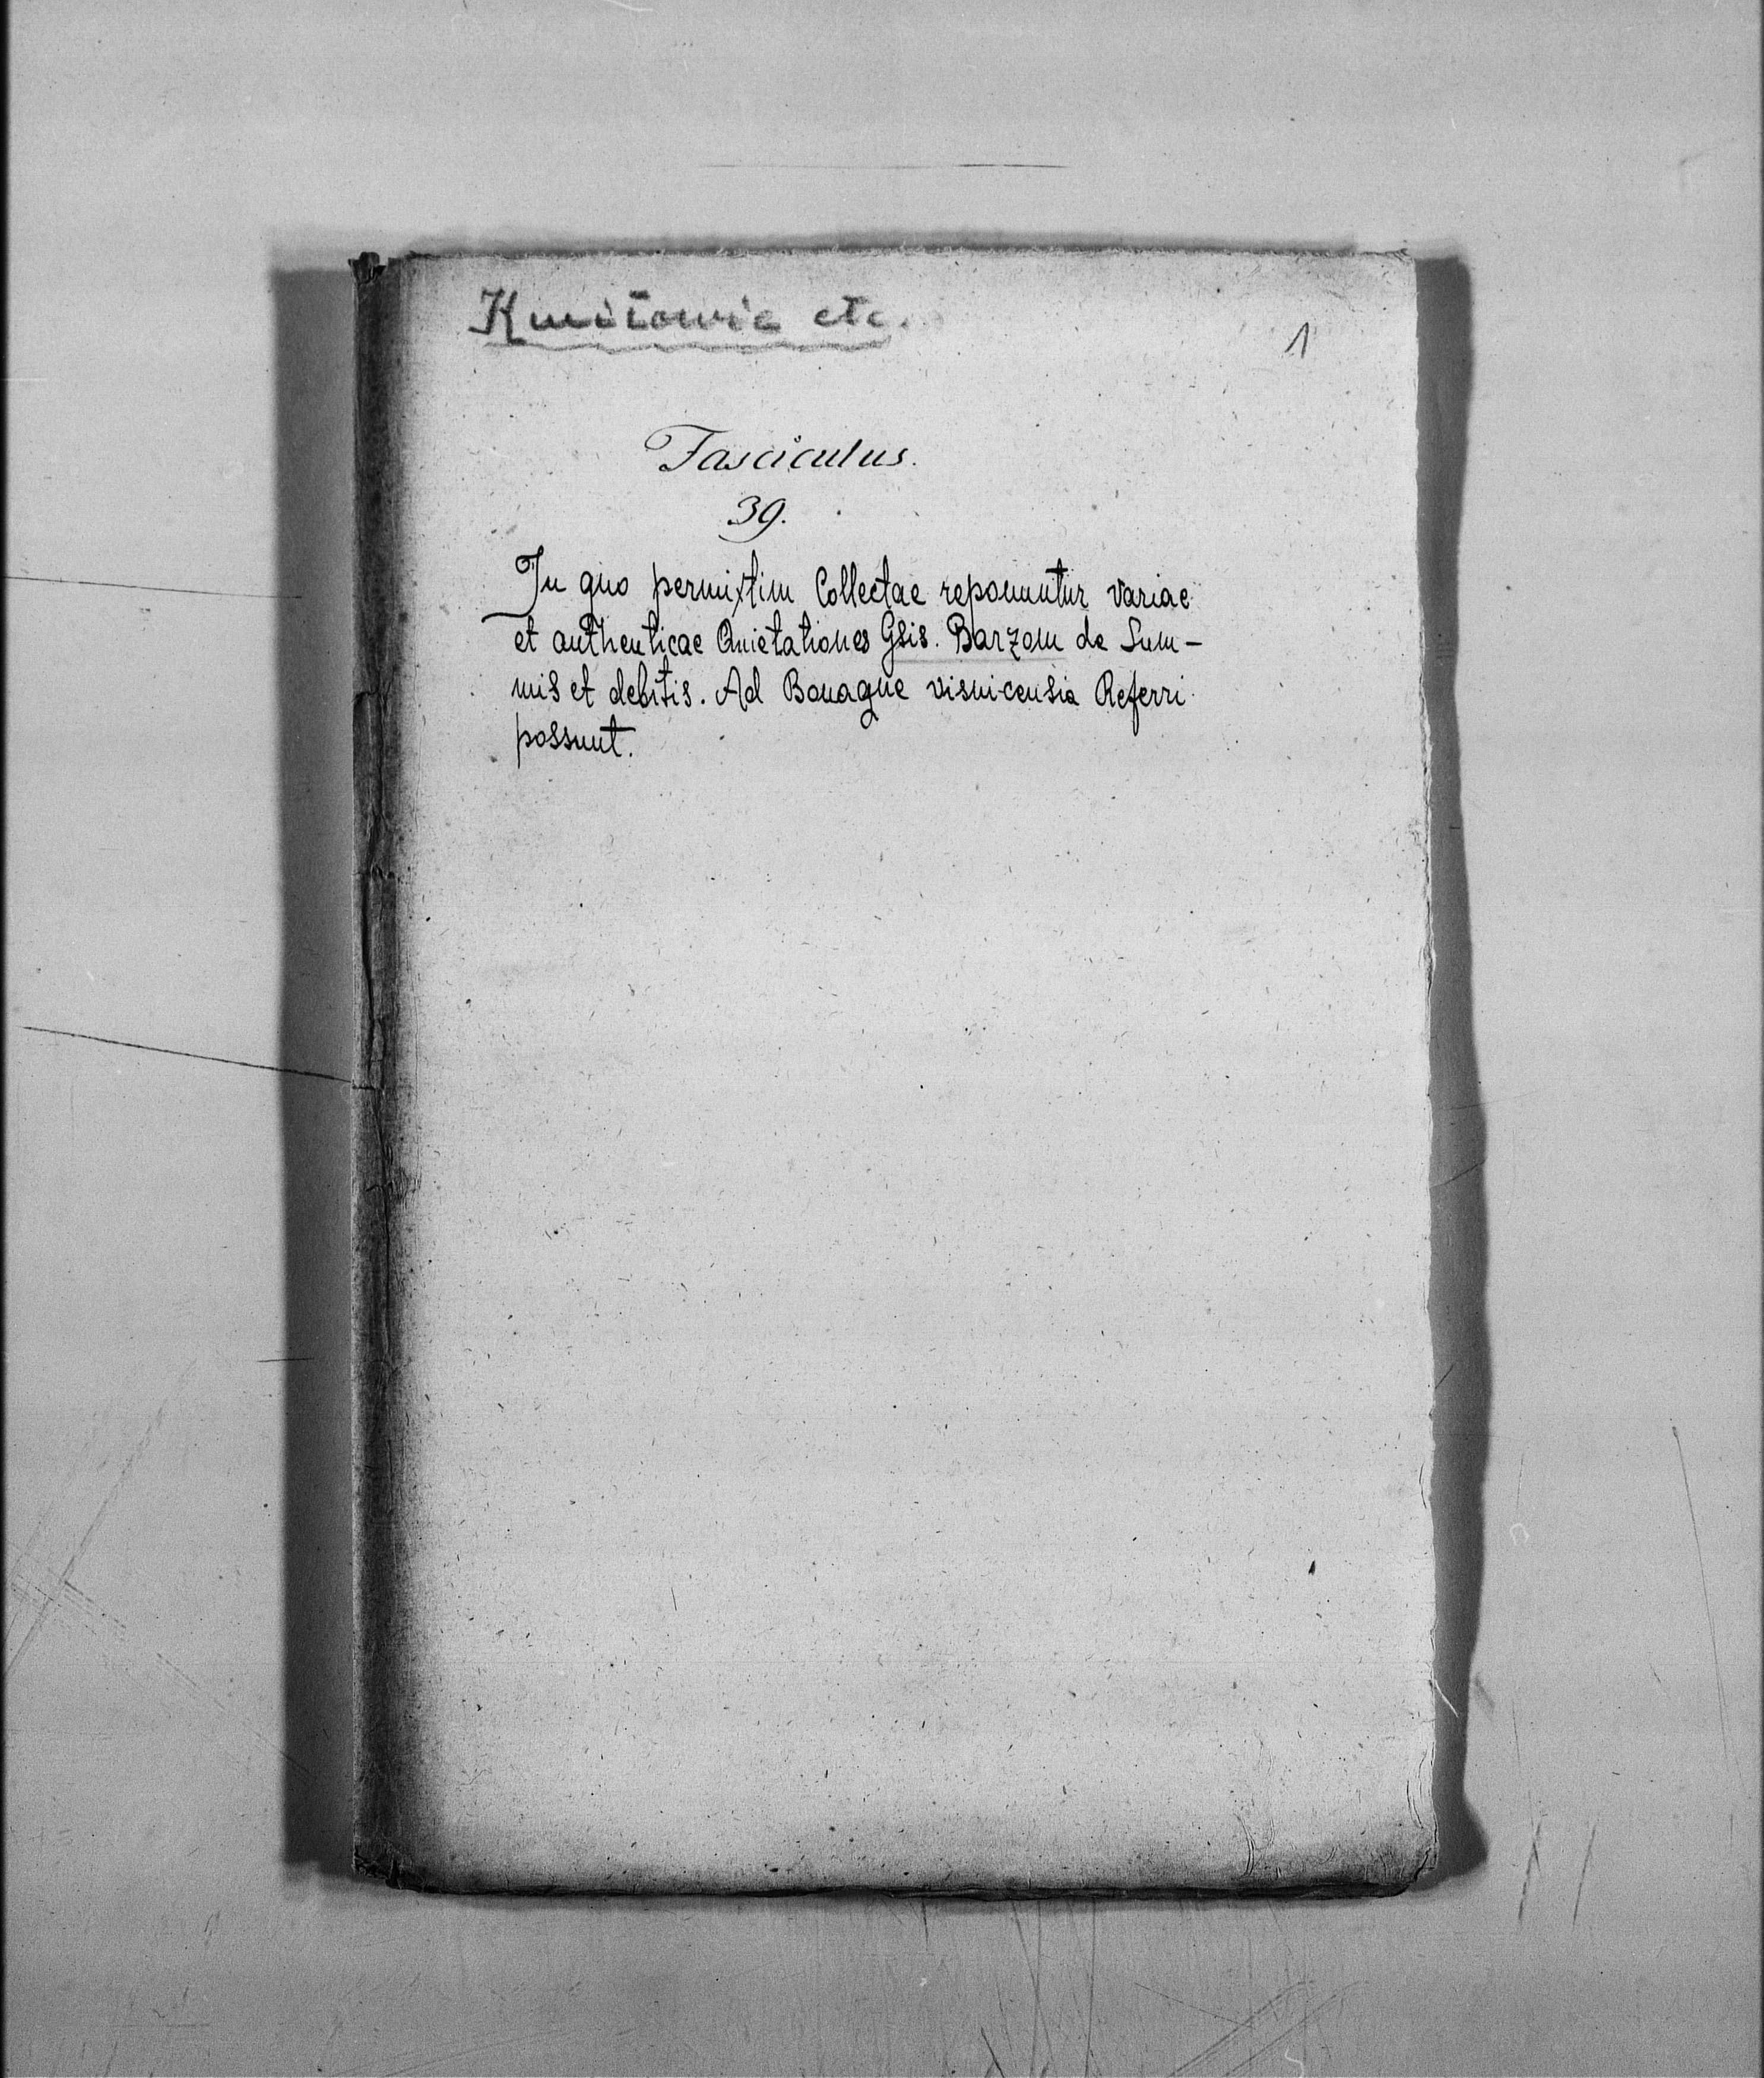 Kmitowie etc.
1
Fasciculus.
39.
In quo permixtim Collectae reponuntur variae
et authenticae Quietationes Gsis. Barzom de Sum-
mis et debitis. Ad Bonaque visnicensia Referri
possunt.